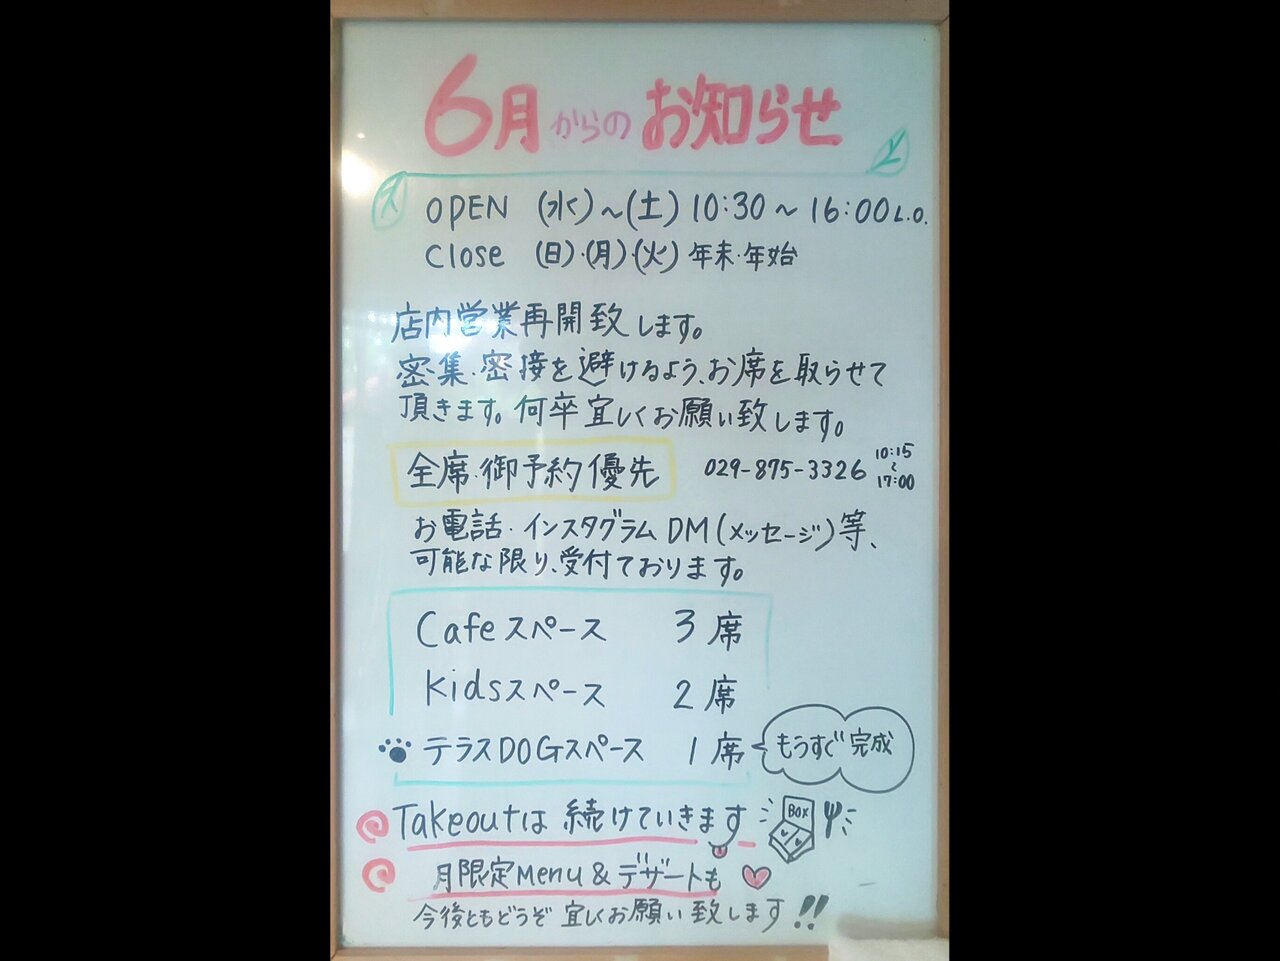 6月からのお知らせ
OPEN (水)~(土) 10:30~16:00 L.O.
Close (日)・(月)・(火) 年末・年始
店内営業再開致します。
密集・密接を避けるよう、お席を取らせて
頂きます。何卒宜しくお願い致します。
全席・御予約優先 029-875-3326 10:15~17:00
お電話・インスタグラムDM(メッセージ)等、
可能な限り、受付ております。
Cafeスペース 3席
Kidsスペース 2席
テラスDOGスペース 1席 もうすぐ完成
Takeoutは続けていきます BOX
月限定Menu&デザートも
今後ともどうぞ宜しくお願い致します!!